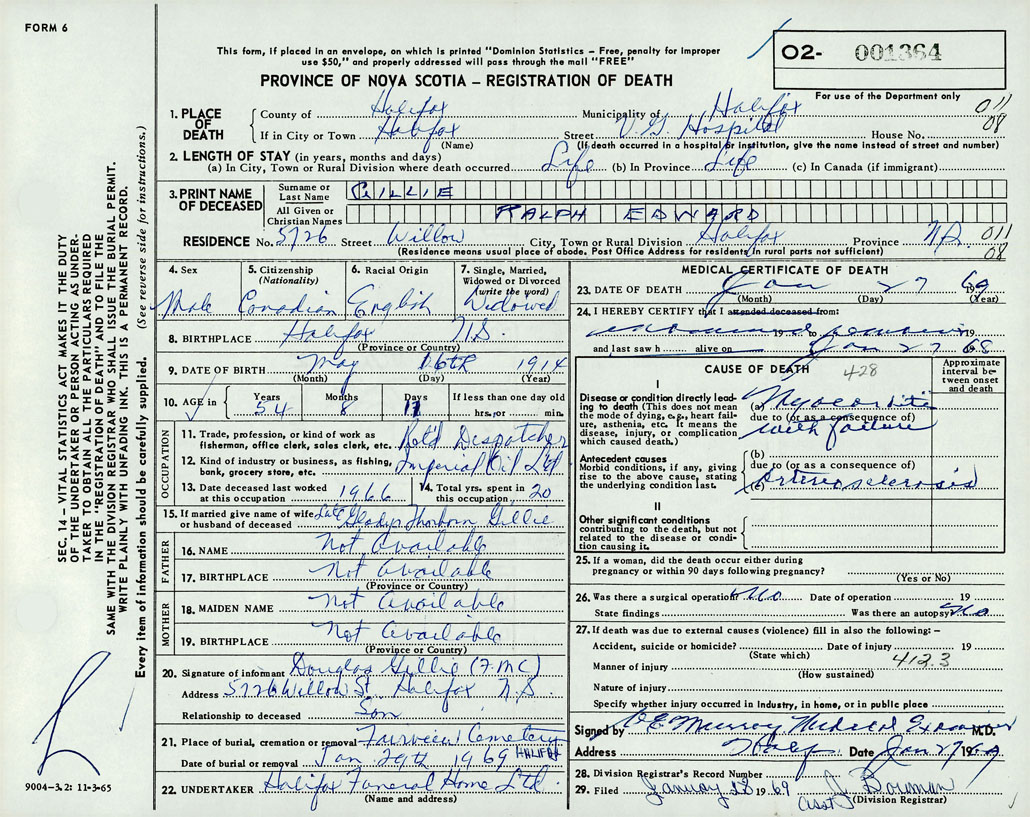 FORM 6
This form, if placed in an envelope, on which is printed "Dominion Statistics – Free, penalty for improper
use $50," and properly addressed will pass through the mail "FREE"
PROVINCE OF NOVA SCOTIA – REGISTRATION OF DEATH
O2- 001364
For use of the Department only
SEC. 14 – VITAL STATISTICS ACT MAKES IT THE DUTY
OF THE UNDERTAKER OR PERSON ACTING AS UNDER-
TAKER TO OBTAIN ALL THE PARTICULARS REQUIRED
IN THE "REGISTRATION OF DEATH" AND TO FILE THE
SAME WITH THE DIVISION REGISTRAR WHO SHALL ISSUE THE BURIAL PERMIT.
WRITE PLAINLY WITH UNFADING INK. THIS IS A PERMANENT RECORD.
Every item of information should be carefully supplied. (See reverse side for instructions.)
1. PLACE OF DEATH
County of Halifax Municipality of Halifax 011
If in City or Town Halifax Street V.G. Hospital House No. 08
(Name) (If death occurred in a hospital or institution, give the name instead of street and number)
2. LENGTH OF STAY (in years, months and days)
(a) In City, Town or Rural Division where death occurred Life (b) In Province Life (c) In Canada (if immigrant)
3. PRINT NAME OF DECEASED
Surname or Last Name GILLIE
All Given or Christian Names RALPH EDWARD
RESIDENCE No. 5726 Street Willow City, Town or Rural Division Halifax Province N.S. 011
(Residence means usual place of abode. Post Office Address for residents in rural parts not sufficient) 08
4. Sex Male
5. Citizenship (Nationality) Canadian
6. Racial Origin English
7. Single, Married, Widowed or Divorced (write the word) Widowed
8. BIRTHPLACE Halifax N.S.
(Province or Country)
9. DATE OF BIRTH May 16th 1914
(Month) (Day) (Year)
10. AGE in Years 54 Months 8 Days 11 If less than one day old hrs. or min.
OCCUPATION
11. Trade, profession, or kind of work as fisherman, office clerk, sales clerk, etc. Ret'd Dispatcher
12. Kind of industry or business, as fishing, bank, grocery store, etc. Imperial Oil Ltd
13. Date deceased last worked at this occupation 1966
14. Total yrs. spent in this occupation 20
15. If married give name of wife or husband of deceased Late Gladys Thorborn Gillie
FATHER
16. NAME Not Available
17. BIRTHPLACE Not Available
(Province or Country)
MOTHER
18. MAIDEN NAME Not Available
19. BIRTHPLACE Not Available
(Province or Country)
20. Signature of informant Douglas Gillie (F.M.C)
Address 5726 Willow St. Halifax N.S.
Relationship to deceased Son
21. Place of burial, cremation or removal Fairview Cemetery
Date of burial or removal Jan 29th 1969 HALIFAX
22. UNDERTAKER Halifax Funeral Home Ltd
(Name and address)
9004-3.2: 11-3-65
MEDICAL CERTIFICATE OF DEATH
23. DATE OF DEATH Jan 27 1969
(Month) (Day) (Year)
24. I HEREBY CERTIFY that I attended deceased from:
19 to 19
and last saw h alive on Jan 27 68
CAUSE OF DEATH 428
Approximate interval between onset and death
I
Disease or condition directly leading to death (This does not mean the mode of dying, e.g., heart failure, asthenia, etc. It means the disease, injury, or complication which caused death.)
(a) Myocarditis
due to (or as a consequence of)
with failure
Antecedent causes
Morbid conditions, if any, giving rise to the above cause, stating the underlying condition last.
(b)
due to (or as a consequence of)
(c) Arteriosclerosis
II
Other significant conditions
contributing to the death, but not related to the disease or condition causing it.
25. If a woman, did the death occur either during pregnancy or within 90 days following pregnancy?
(Yes or No)
26. Was there a surgical operation? No Date of operation 19
State findings Was there an autopsy? No
27. If death was due to external causes (violence) fill in also the following: –
Accident, suicide or homicide? Date of injury 19
(State which) 412.3
Manner of injury
(How sustained)
Nature of injury
Specify whether injury occurred in Industry, in home, or in public place
Signed by Murray Medical Examiner M.D.
Address Halifax Date Jan 27 1969
28. Division Registrar's Record Number
29. Filed January 28 1969 Asst J. Bowman
(Division Registrar)